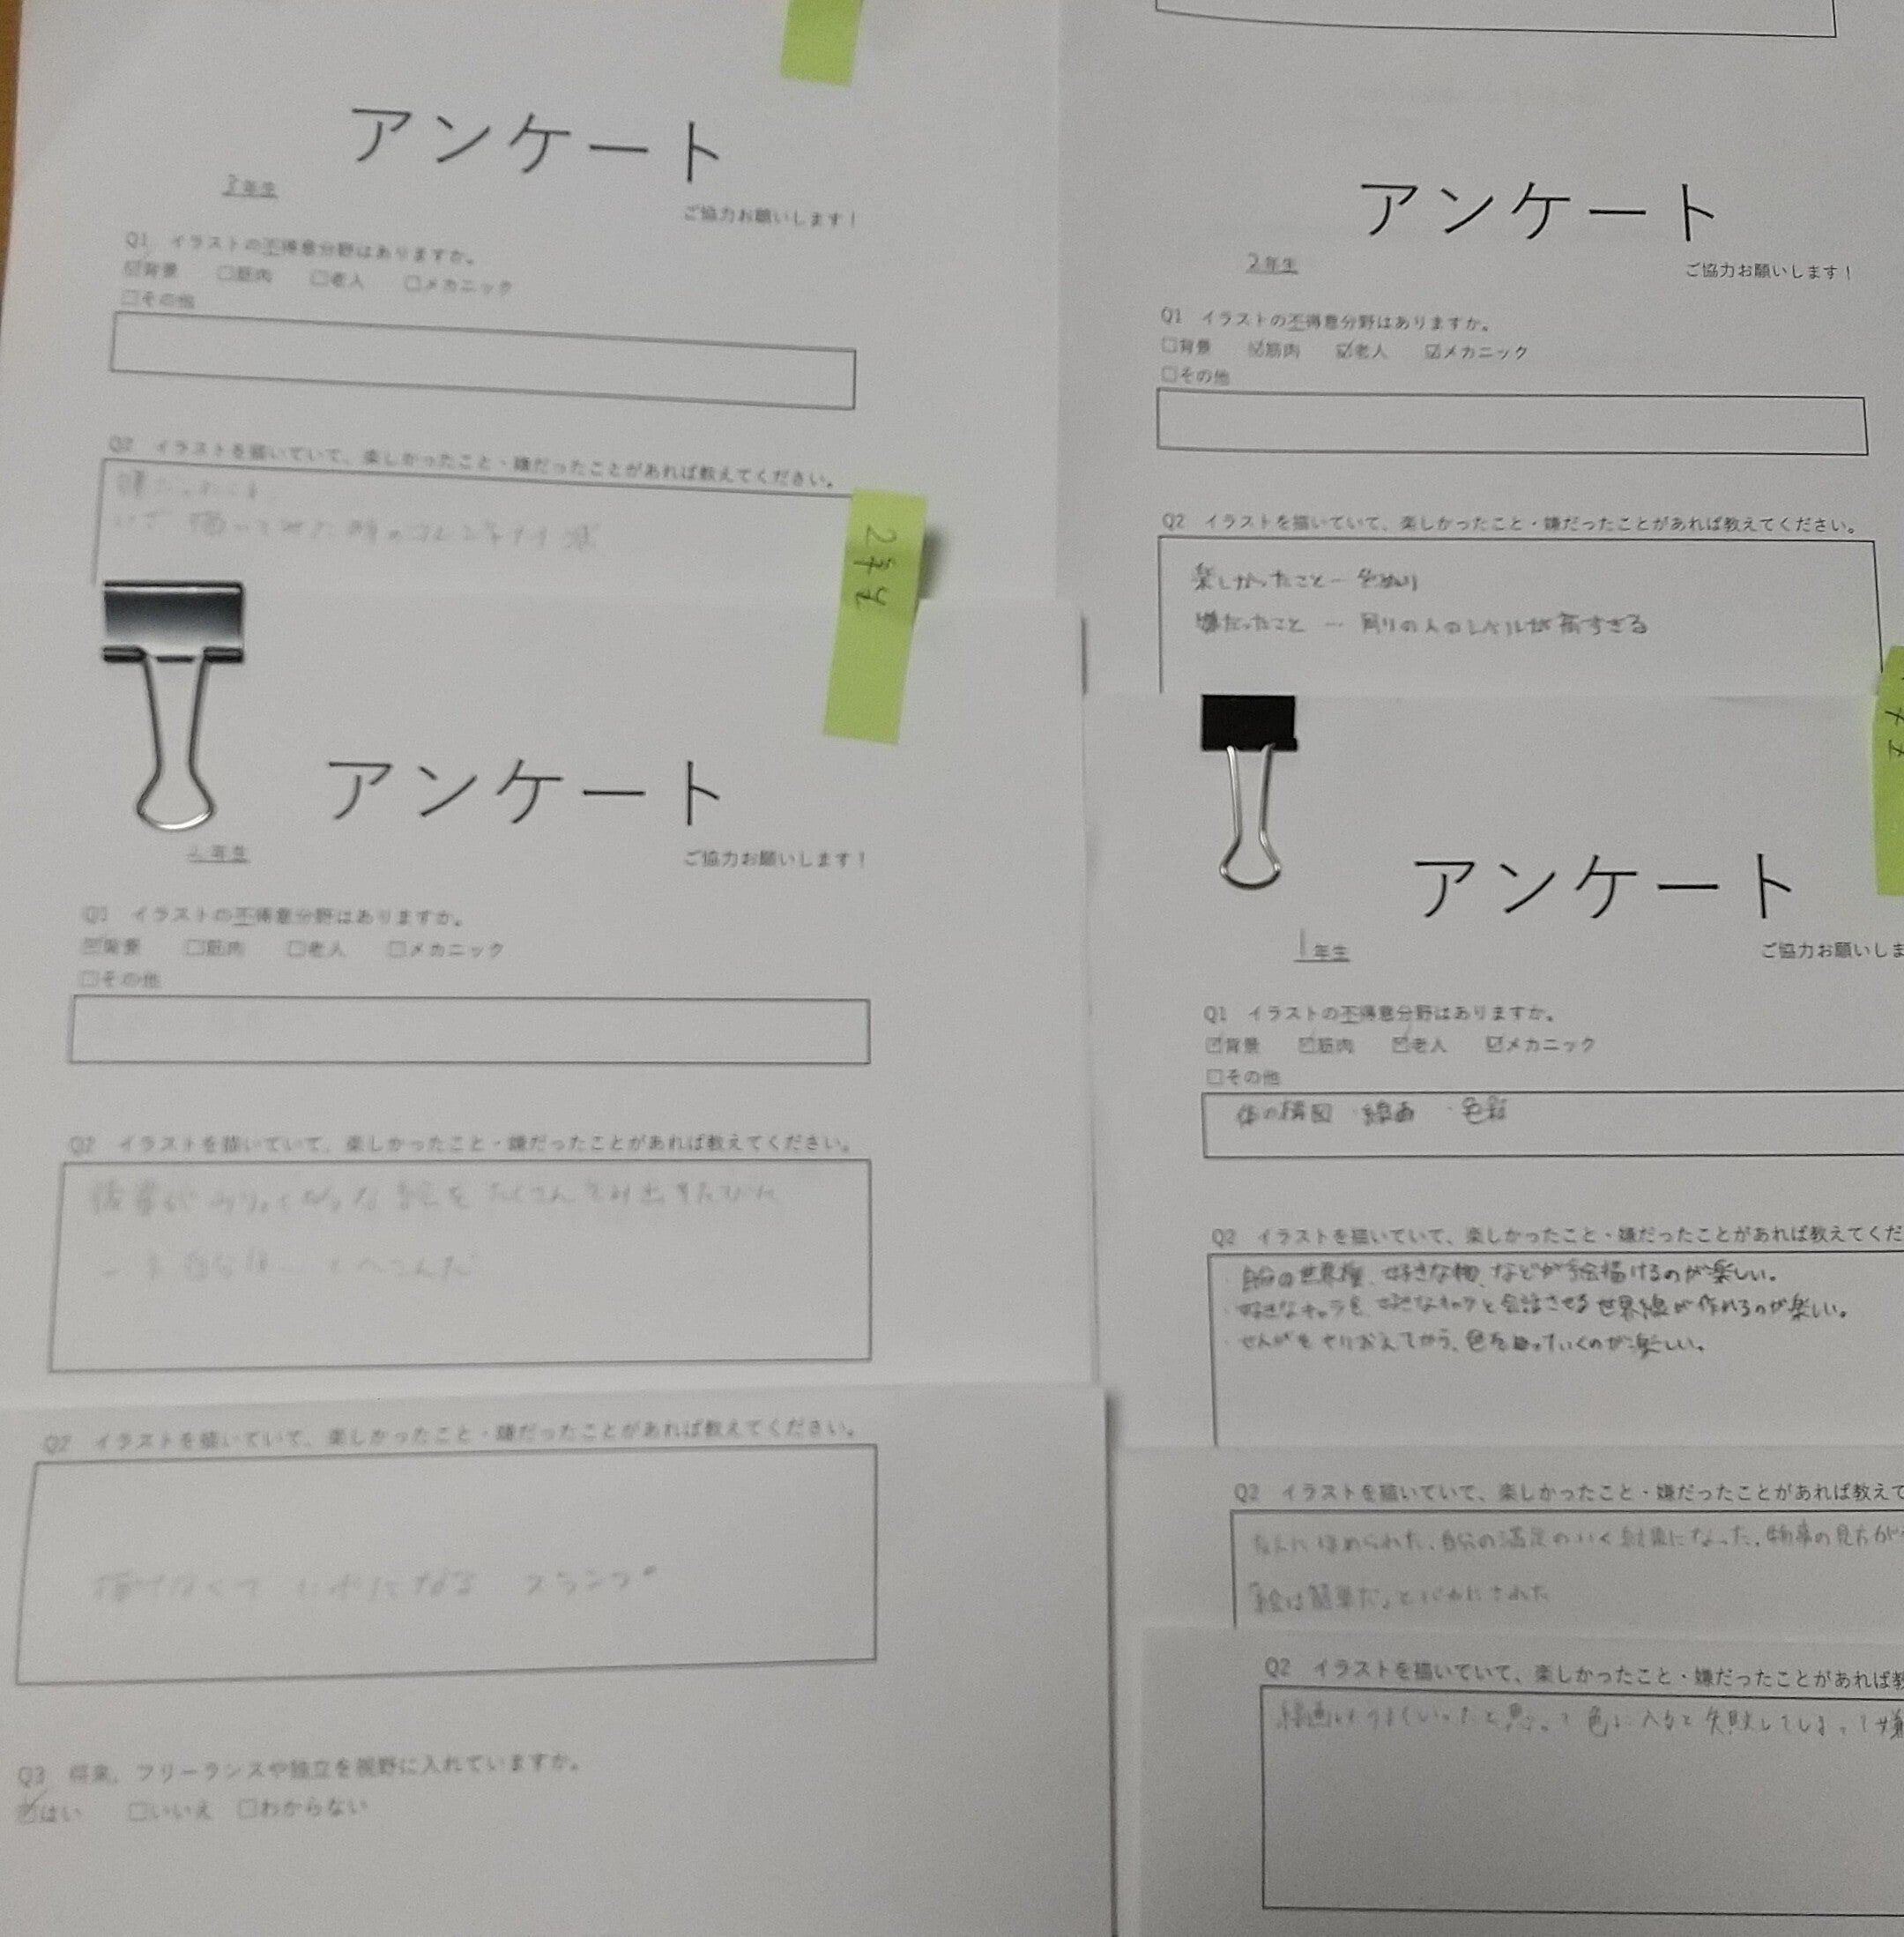 アンケート
年生
ご協力お願いします！
Q1 イラストの不得意分野はありますか。
☑背景 □筋肉 □老人 □メカニック
□その他
Q2 イラストを描いていて、楽しかったこと・嫌だったことがあれば教えてください。
嫌だったこと
描いてみた時のコレジャナイ感
2年生
アンケート
年生
ご協力お願いします！
Q1 イラストの不得意分野はありますか。
☑背景 □筋肉 □老人 □メカニック
□その他
Q2 イラストを描いていて、楽しかったこと・嫌だったことがあれば教えてください。
Q2 イラストを描いていて、楽しかったこと・嫌だったことがあれば教えてください。
描けなくて いやになる スランプ
Q3 将来、フリーランスや独立を視野に入れていますか。
☑はい □いいえ □わからない
アンケート
2年生
ご協力お願いします！
Q1 イラストの不得意分野はありますか。
□背景 ☑筋肉 ☑老人 ☑メカニック
□その他
Q2 イラストを描いていて、楽しかったこと・嫌だったことがあれば教えてください。
楽しかったこと… 色ぬり
嫌だったこと … 周りの人のレベルが高すぎる
アンケート
1年生
ご協力お願いしま
Q1 イラストの不得意分野はありますか。
☑背景 ☑筋肉 ☑老人 ☑メカニック
□その他
体の構図 ・線画 ・色彩
Q2 イラストを描いていて、楽しかったこと・嫌だったことがあれば教えてくだ
・自分の世界種、好きな物、などが絵描けるのが楽しい。
・好きなキャラを、好きなキャラと会話させる世界線が作れるのが楽しい。
・せんがをやりおえてから、色を塗っていくのが楽しい。
Q2 イラストを描いていて、楽しかったこと・嫌だったことがあれば教えて
ほめられた、自分の満足のいく結果になった、物事の見方が
「絵は簡単だ」とバカにされた
Q2 イラストを描いていて、楽しかったこと・嫌だったことがあれば教
線画はうまくいったと思って色に入ると失敗してしまって嫌